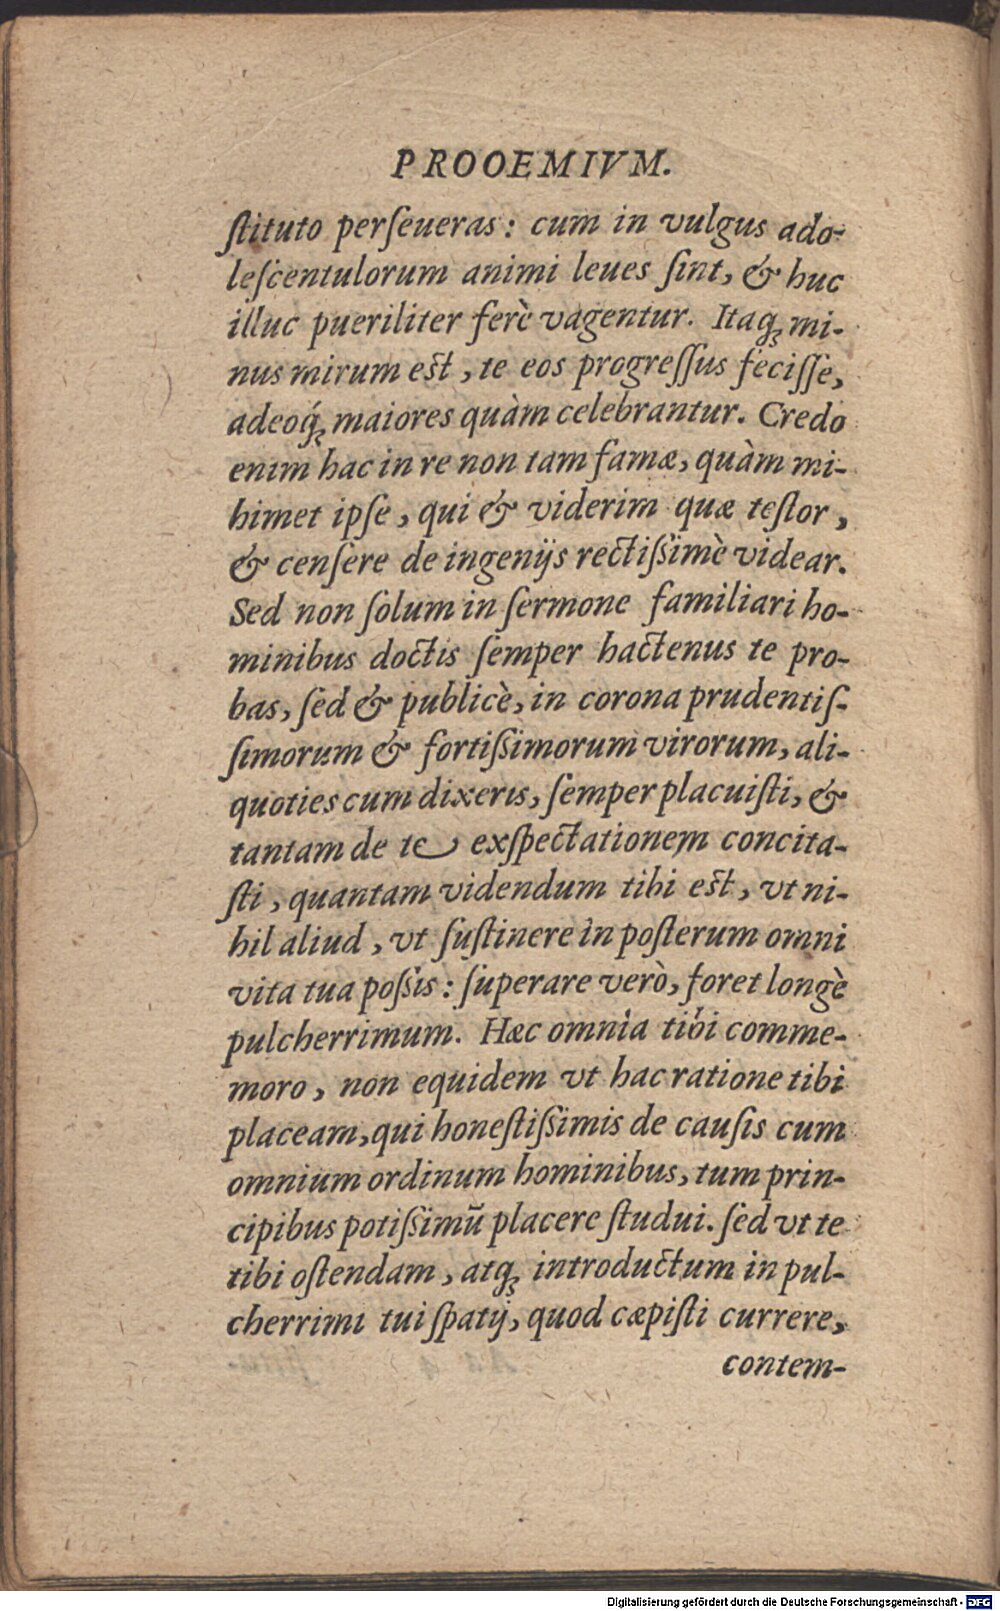 PROOEMIVM.
ſtituto perſeueras: cum in vulgus ado-
leſcentulorum animi leues ſint, & huc
illuc pueriliter ferè vagentur. Itaq; mi-
nus mirum est, te eos progreſſus feciſſe,
adeoq́; maiores quàm celebrantur. Credo
enim hac in re non tam famæ, quàm mi-
himet ipſe, qui & viderim quæ teſtor,
& cenſere de ingenijs rectißimè videar.
Sed non ſolum in ſermone familiari ho-
minibus doctis ſemper hactenus te pro-
bas, ſed & publicè, in corona prudentiſ-
ſimorum & fortißimorum virorum, ali-
quoties cum dixeris, ſemper placuiſti, &
tantam de te exſpectationem concita-
ſti, quantam videndum tibi est, vt ni-
hil aliud, vt ſuſtinere in poſterum omni
vita tua poßis: ſuperare verò, foret longè
pulcherrimum. Hæc omnia tibi comme-
moro, non equidem vt hac ratione tibi
placeam, qui honeſtißimis de cauſis cum
omnium ordinum hominibus, tum prin-
cipibus potißimũ placere ſtudui. ſed vt te
tibi oſtendam, atq; introductum in pul-
cherrimi tui ſpatij, quod cæpiſti currere,
contem-
Digitalisierung gefördert durch die Deutsche Forschungsgemeinschaft - DFG